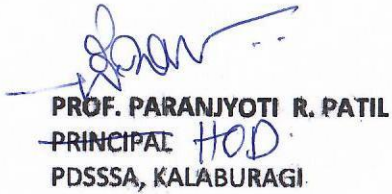 PROF. PARANJYOTI R. PATIL
PRINCIPAL HOD
PDSSSA, KALABURAGI